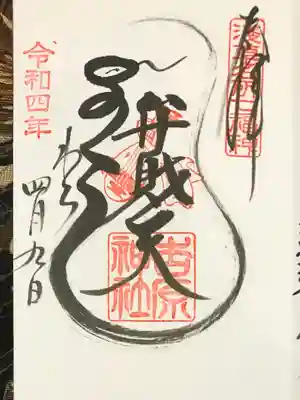 奉拝
浅草名所七福神
弁財天
吉原神社
わら
令和四年
四月九日